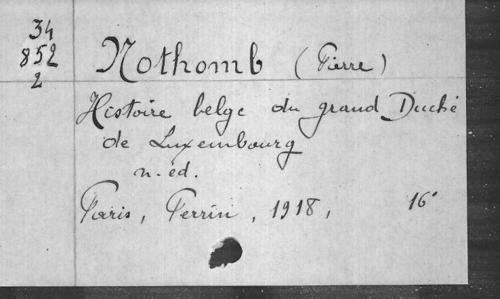 34
852
2
Nothomb (Pierre)
Histoire belge du grand Duché
de Luxembourg
n. éd.
Paris, Perrin, 1918, 16°